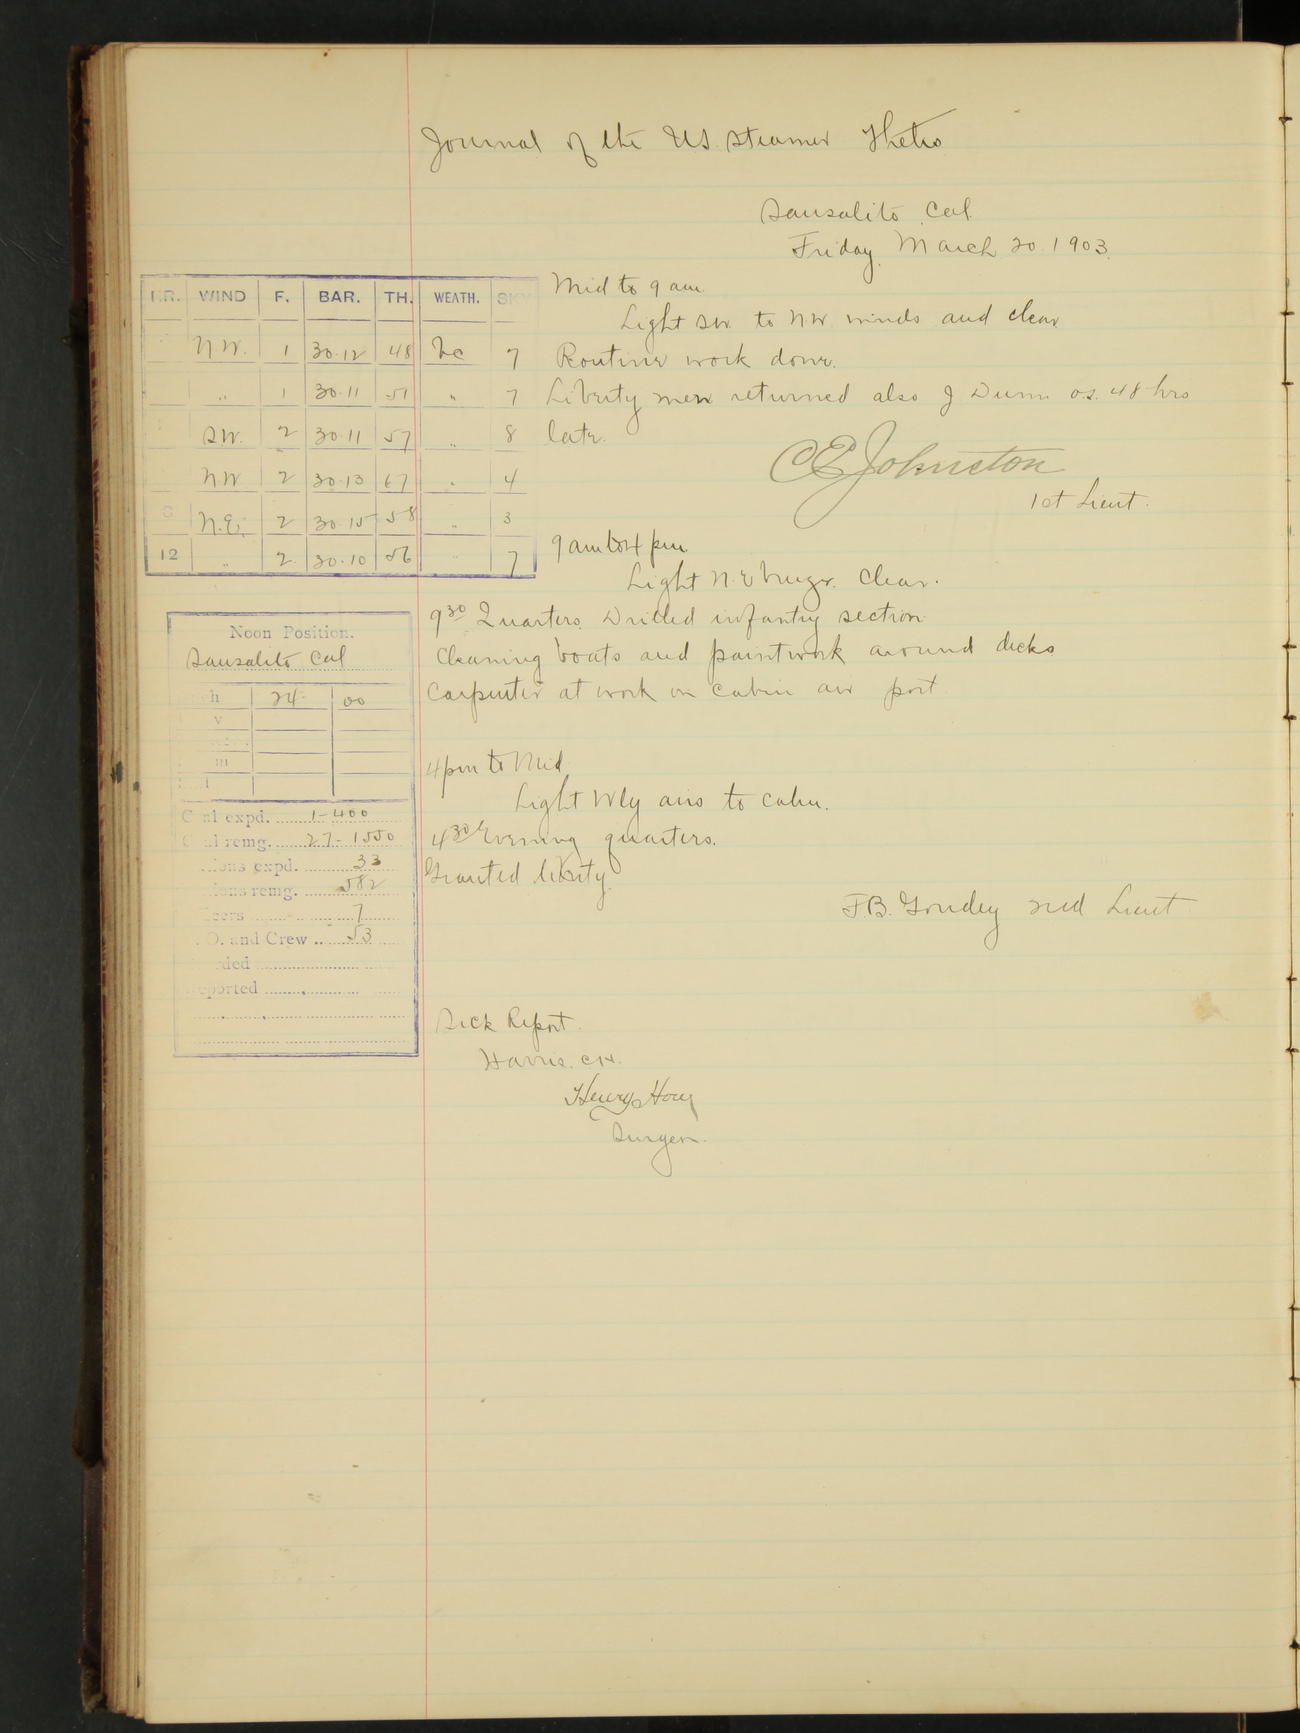 Journal of the US. Steamer Thetis
Sausalito Cal.
Friday, March 20. 1903.
HR. WIND F. BAR. TH. WEATH. SKY
N.W. 1 30.12 48 bc 7
" 1 30.11 51 " 7
SW. 2 30.11 57 " 8
NW 2 30.13 67 " 4
8 N.E. 2 30.15 58 " 3
12 " 2 30.10 56 " 7
Mid to 9 am.
Light SW. to NW. winds and clear
Routine work done.
Liberty men returned also J Dunn o.s. 48 hrs
late.
C E Johnston
1st Lieut.
9 am to 4 pm
Light N.E breeze. Clear.
9 30 Quarters. Drilled infantry section
Cleaning boats and paintwork around decks
Carpenter at work on cabin air port
4 pm to Mid
Light Wly airs to calm.
4 30 Evening quarters.
Granted liberty.
2nd Lieut
Noon Position.
Sausalito Cal
24 00
expd. 1-400
remg. 27-1550
expd. 33
remg. 582
7
O. and Crew 53
Sick Report.
Harris. C.H.
Henry
Surgeon.